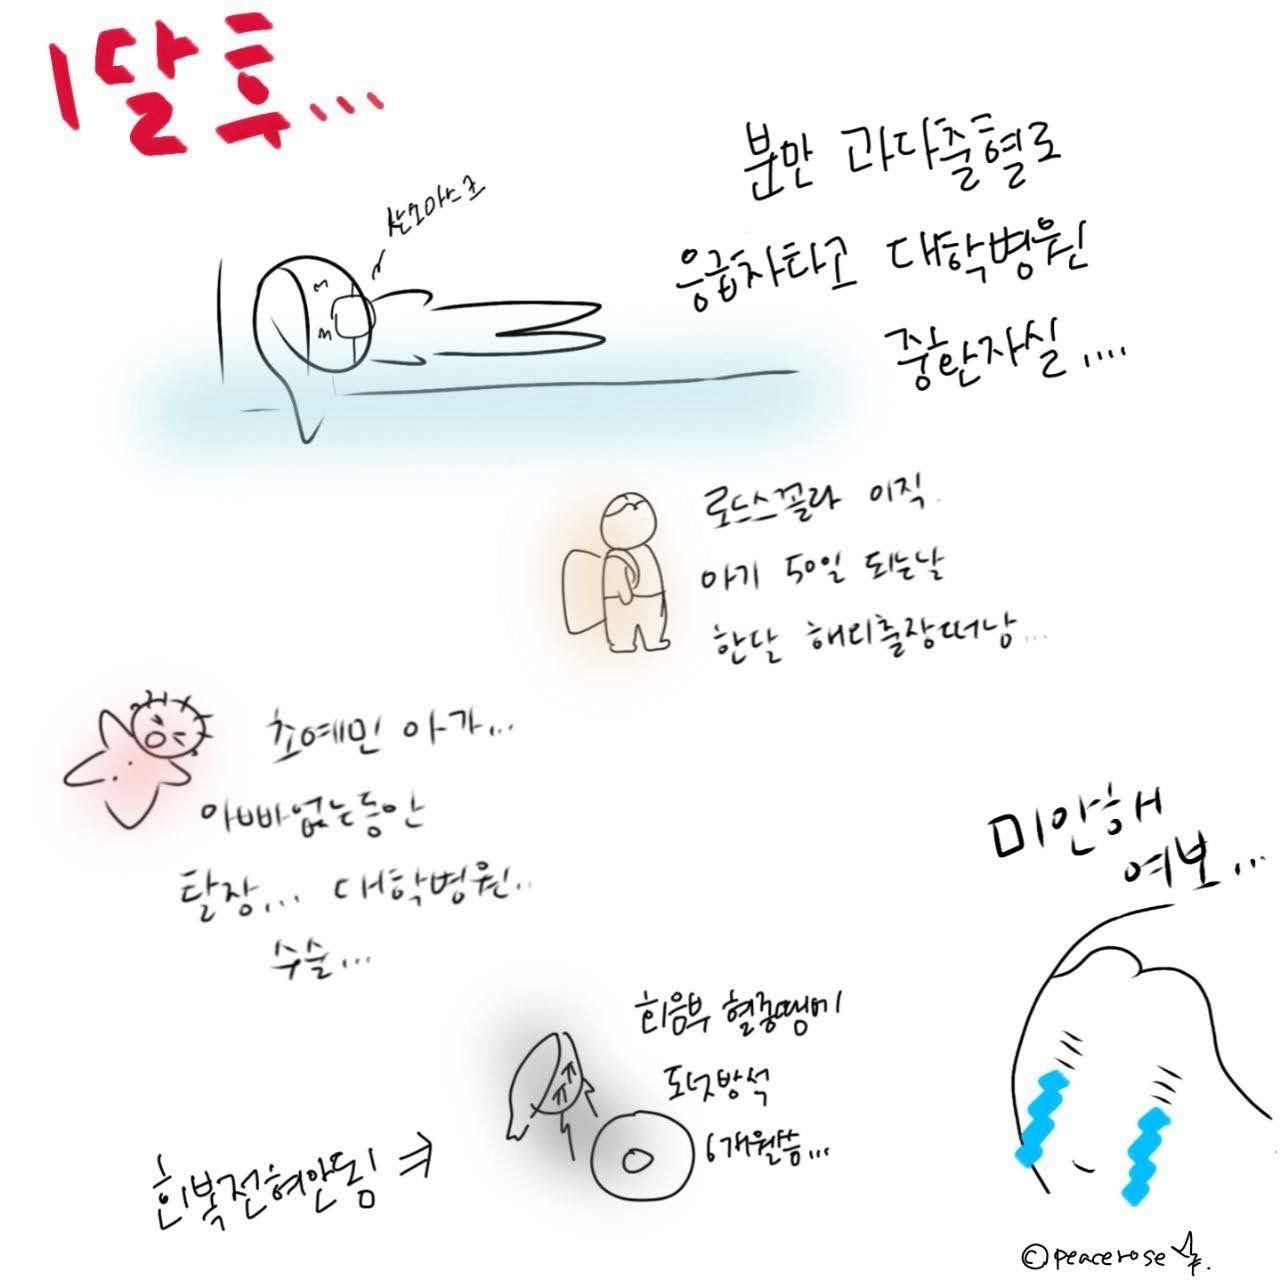 1달후...
산모마스크
분만 과다출혈로
응급차타고 대학병원
중환자실....
로드스꼴라 이직.
아기 50일 되는날
한달 해외출장떠남...
초예민 아가...
아빠없는동안
탈장... 대학병원..
수술...
미안해
여보...
회음부 혈종땜에
도넛방석
6개월씀...
회복전혀안됨 ⇒
©peacerose